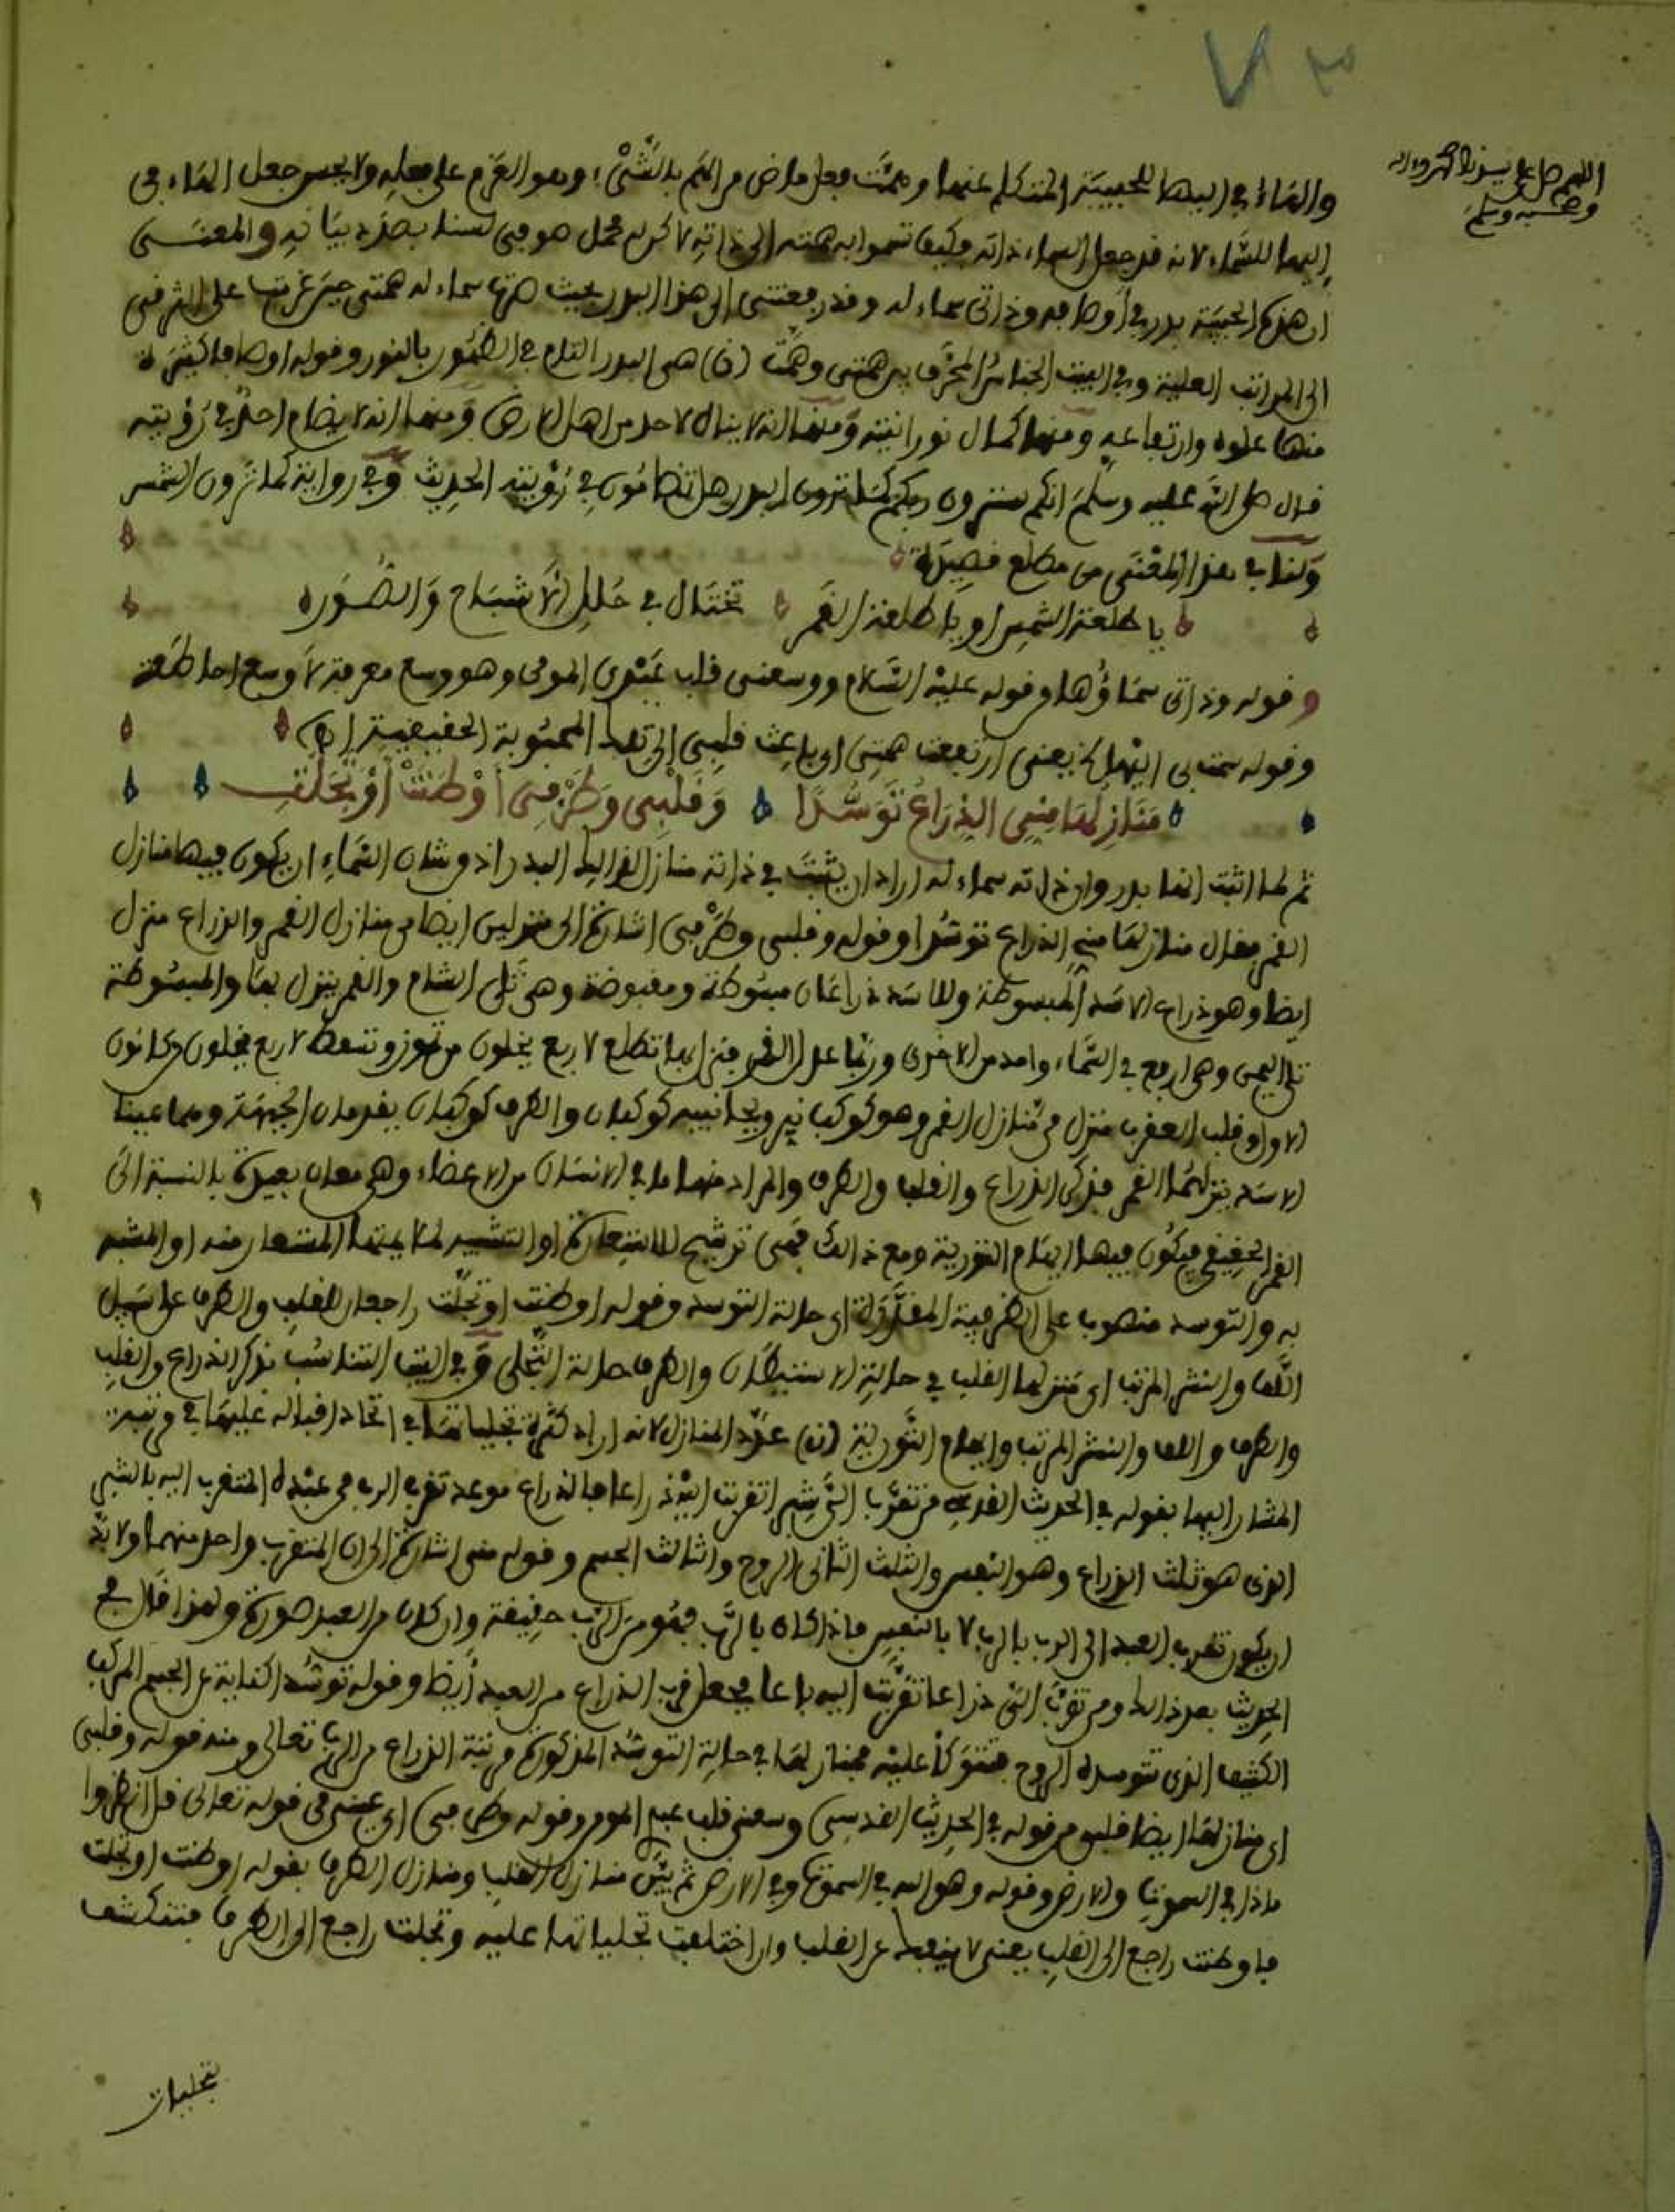 ٧٣
اللهم صل على سيدنا محمد وءاله
وصحبه وسلم
والهاء في إليها للحبيبة المتكلم عنها وهمت فعل ماض من الهم بالشيء وهو العزم على فعله ولا يحسن جعل الهاء في
إليها للسماء لانه قد جعل السماء ذاته فكيف تسموا به همته الى ذاته لا كن له محمل صوفي لسنا بصدد بيانه والمعنى
ان هذه الحبيبة بدر في أوصافه وذاتي سماء له وقد رفعتني الى هذا البدر بحيث صرت سماء له همتي حين عزمت على الترقي
الى المراتب العلية وفي البيت الجناس المحرف بين همتي وهمت (ن) هي البدر التام في الظهور بالنور وقوله اوصافا كثيرة
منها علوه وارتفاعه ومنها كمال نورانيته ومنها انه لا يناله لاحد من اهل الارض ومنها انه لا يضام احد في رؤيته
قال صلى الله عليه وسلم انكم سترون ربكم كما ترون البدر هل تضامون في رؤيته الحديث وفي رواية كما ترون الشمس
ولنا في هذا المعنى من مطلع قصيدة
يا طلعة الشمس او يا طلعة القمر تختال في حلل الاشباح والصور
وقوله وذاتي سماؤها وقوله عليه السلام ووسعني قلب عبدي المومن وهو وسع معرفة لا وسع احاطة
وقوله سمت بي اليها يعني ارتفعت همتي اي باعث قلبي الى تلك المحبوبة الحقيقية اهـ
منازلها مني الذراع توسدا وقلبي وطرفي أوطنت أو تجلت
ثم لما اثبت انها بدر وان ذاته سماء له اراد ان يثبت في ذاته منازل لذلك البدر اذ من شان السماء ان يكون فيها منازل
القمر فقال منازلها مني الذراع توسدا وقوله وقلبي وطرفي اشارة الى منزلين ايضا من منازل القمر والذراع منزل
ايضا وهو ذراع الاسد المبسوطة وللاسد ذراعان مبسوطة ومقبوضة وهي تلي الشام والقمر ينزل بها والمبسوطة
تلي اليمن وهي ارفع في السماء وامد من الاخرى وربما عدل القمر فنزل بها تطلع لاربع يخلون من تموز وتسقط لاربع يخلون من كانون
الاول وقلب العقرب منزل من منازل القمر وهو كوكب نير وبجانبيه كوكبان والطرف كوكبان يقدمان الجبهة وهما عينا
الاسد ينزلهما القمر فذكر الذراع والقلب والطرف والمراد منها ما في الانسان من الاعضاء وهي معان بعيدة بالنسبة الى
القمر الحقيقي فيكون فيها ايهام التورية ومع ذلك فهي ترشيح للاستعارة او التشبيه لملايمتها المستعار منه او المشبه
به والتوسد منصوب على الظرفية المقدرة اي حالة التوسد وقوله اوطنت او تجلت راجعان للقلب والطرف على سبيل
اللف والنشر المرتب اي منزلها القلب في حالة الاستيطان والطرف حالة التجلي وفي البيت التناسب بذكر الذراع والقلب
والطرف واللف والنشر المرتب وايهام التورية (ن) عدد المنازل لانه اراد كثرة تجلياتها في اتحاد اقباله عليها في مرتبة
المشار اليها بقوله في الحديث القدسي من تقرب الي شبرا تقربت اليه ذراعا فالذراع موعد تقرب الرب من عبده المتقرب اليه بالشبر
الذي هو ثلث الذراع وهو النفس والثلث الثاني الروح والثالث الجسم وقوله مني اشارة الى ان المتقرب واحد منهما ولا بد
ان يكون تقرب العبد الى الرب بالرب لا بالنفس فاذا كان بالرب فهو من الرب حقيقة وان كان من العبد صورة ولهذا قال في
الحديث بعد ذلك ومن تقرب الي ذراعا تقربت اليه باعا فجعل قرب الذراع من العبد أيضا وقوله توسدا كناية عن الجسم المركب
الكثيف الذي تتوسده الروح فتتوكأ عليه فمنازلها في حالة التوسد المذكورة مرتبة الذراع من الرب تعالى ومنه قوله وقلبي
اي منازلها ايضا قلبي من قوله في الحديث القدسي وسعني قلب عبدي المومن وقوله وطرفي اي عيني من قوله تعالى قل انظروا
ماذا في السموت والارض وقوله وهو الله في السموت وفي الارض ثم بين منازل القلب ومنازل الطرف بقوله اوطنت او تجلت
فاوطنت راجع الى القلب يعني لا ينفك عن القلب وان اختلفت تجلياتها عليه وتجلت راجع الى الطرف فتنكشف
تجليات